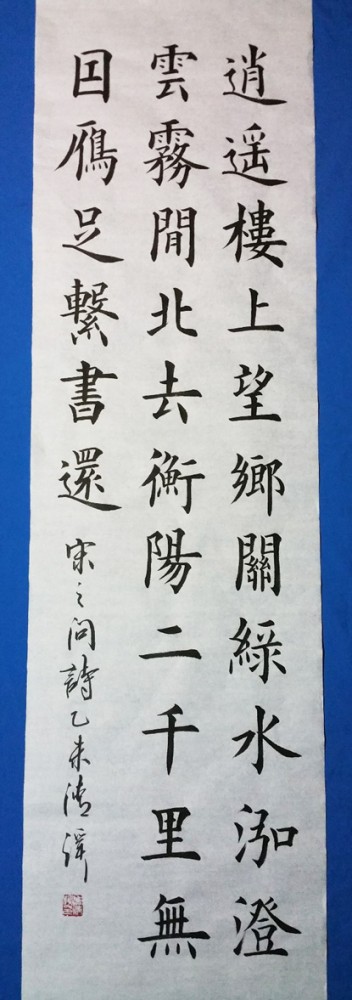 逍遥樓上望鄉關綠水泓澄
雲霧間北去衡陽二千里無
因雁足繫書還
宋之问詩乙未